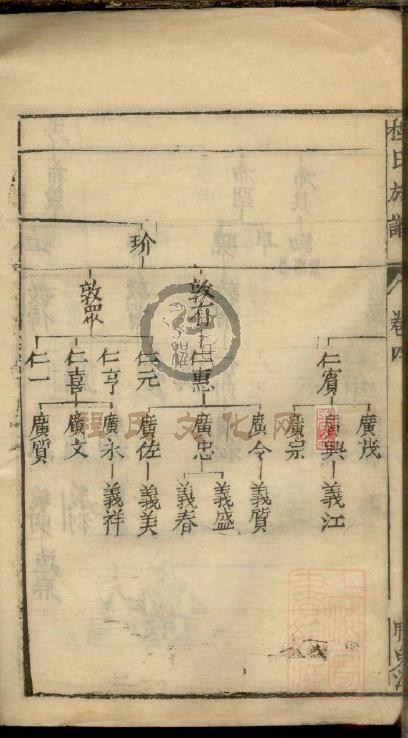 程氏族譜
卷四
玠
敦有
敦眾
仁賓
仁惠
仁元
仁亨
仁喜
仁一
廣茂
廣興
廣宗
廣令
廣忠
廣佐
廣永
廣文
廣質
義江
義質
義盛
義春
義美
義祥
程氏文化网